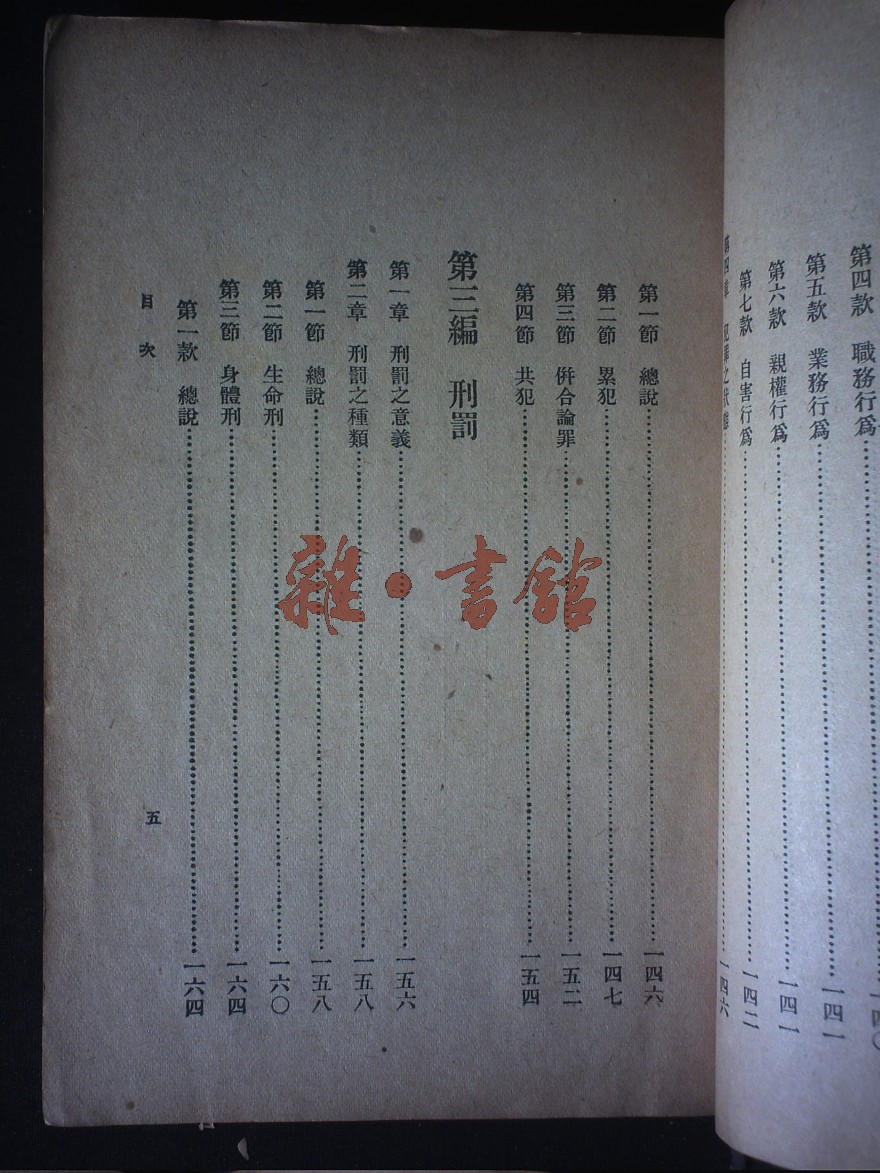 第四款　職務行爲……一四〇
第五款　業務行爲……一四一
第六款　親權行爲……一四一
第七款　自害行爲……一四二
第四章　犯罪之狀態……一四六
第一節　總說……一四六
第二節　累犯……一四七
第三節　倂合論罪……一五二
第四節　共犯……一五四
第三編　刑罰
第一章　刑罰之意義……一五六
第二章　刑罰之種類……一五八
第一節　總說……一五八
第二節　生命刑……一六〇
第三節　身體刑……一六四
第一款　總說……一六四
目次　五
雜·書館